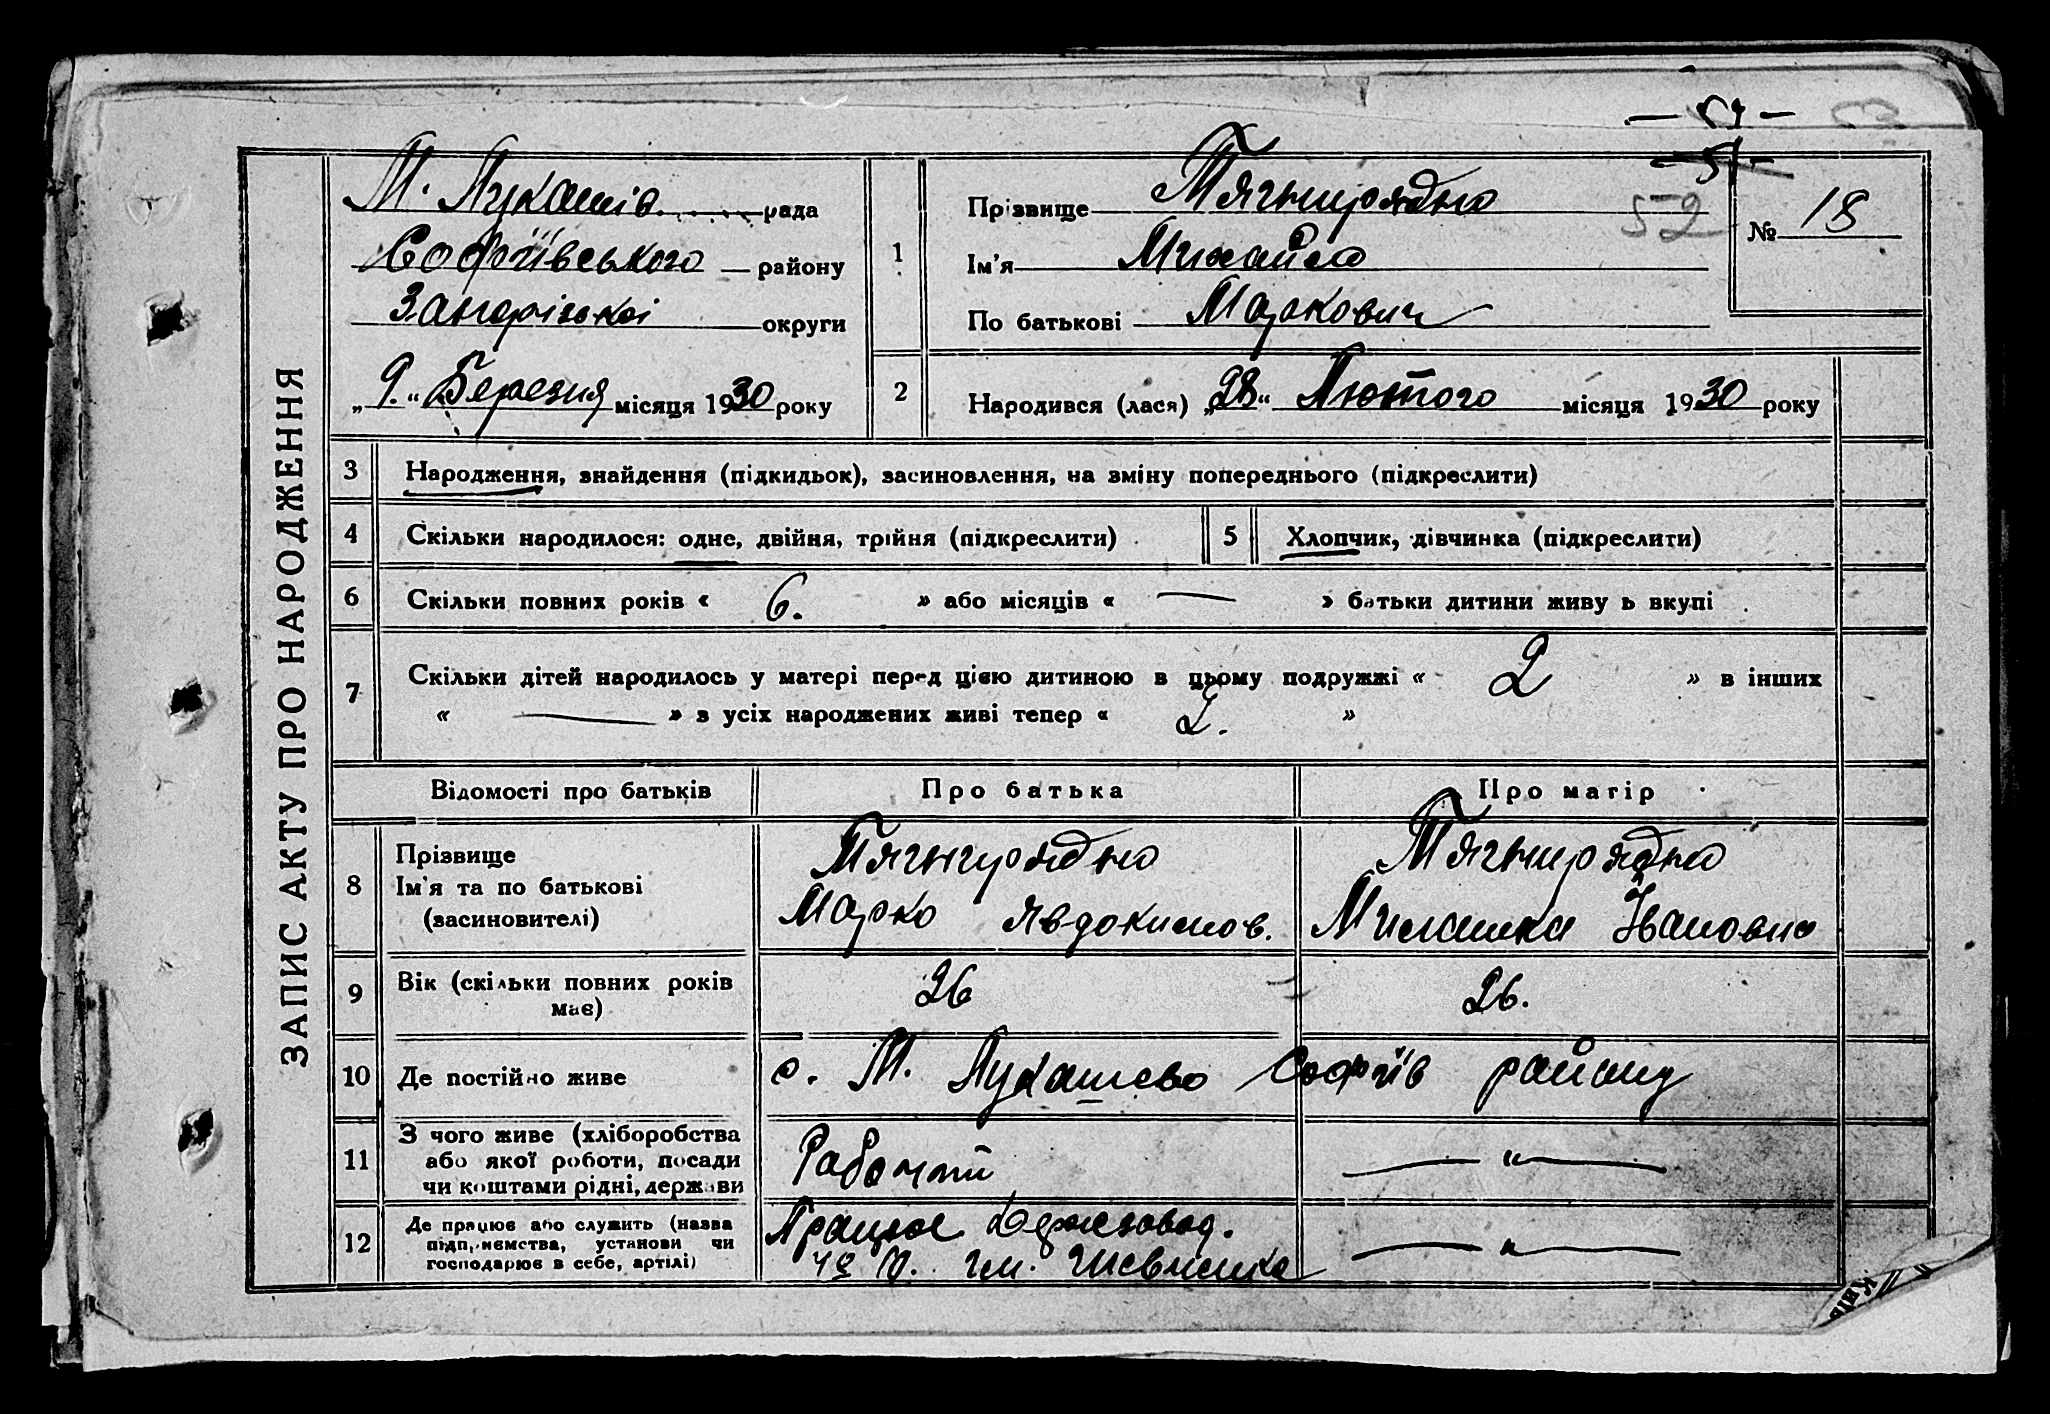 ЗАПИС АКТУ ПРО НАРОДЖЕННЯ
М. Лукашів рада
Софіївського району
Запорізької округи
„9.“ Березня місяця 1930 року
1
Прізвище Тягнирядно
Ім'я Михайло
По батькові Маркович
52
№ 18
2
Народився (лася) „28“ Лютого місяця 1930 року
3 Народження, знайдення (підкидьок), засиновлення, на зміну попереднього (підкреслити)
4 Скільки народилося: одне, двійня, трійня (підкреслити)
5 Хлопчик, дівчинка (підкреслити)
6 Скільки повних років « 6. » або місяців « — » батьки дитини живу ь вкупі
7 Скільки дітей народилось у матері перед цією дитиною в цьому подружжі « 2 » в інших
« — » з усіх народжених живі тепер « 2. »
Відомості про батьків Про батька Про матір
8 Прізвище
Ім'я та по батькові
(засиновителі)
Тягнирядно
Марко Явдокимов.
Тягнирядно
Милашка Івановна
9 Вік (скільки повних років
має)
26
26.
10 Де постійно живе
с. М. Лукашево Софіїв району
11 З чого живе (хліборобства
або якої роботи, посади
чи коштами рідні, держави
— " —
12 Де працює або служить (назва
підприємства, установи чи
господарює в себе, артілі)
Працює
ім. Шевченка
— " —
Київ